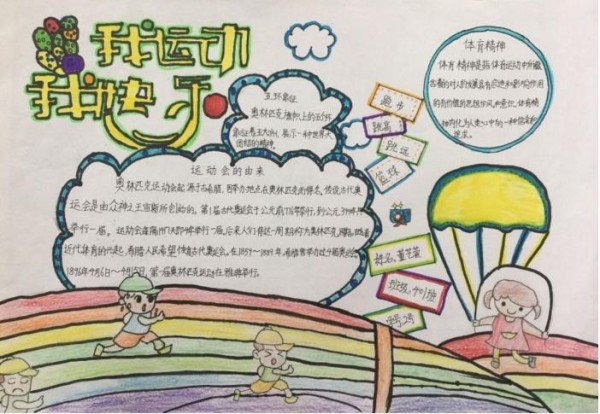 我运动
我快乐
五环象征
奥林匹克旗帜上的五环
象征着五大洲，展示一种世界大
团结的精神。
跑步
跳高
跳远
篮球
体育精神
体育精神是指体育运动中所蕴
含着的对人的发展具有启迪和影响作用
的有价值的思想作风和意识。体育精
运动会的由来
奥林匹克运动会起源于古希腊，因举办地点在奥林匹克而得名，传说古代奥
运会是由众神之王宙斯所创始的。第1届古代奥运会于公元前776年举行，到公元394年共
举行一届，运动会每隔
近代体育的兴起，希腊人民希望恢复古代奥运会。在1859～1889年，希腊曾举办过4届奥运会。
1896年4月6日～4月15日，第一届奥林匹克运动会在雅典举行。
姓名：董芷萱
班级：401班
学号：2号